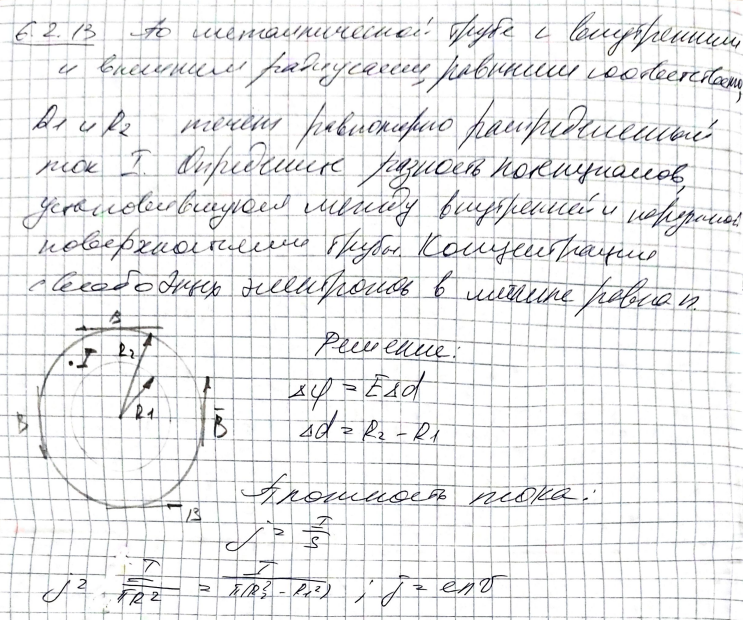 6.2.13 По металлической трубе с внутренним
и внешним радиусами, равными соответственно,
R1 и R2 течет равномерно распределенный
ток I. Определите разность потенциалов,
установившуюся между внутренней и наружной
поверхностями трубы. Концентрация
свободных электронов в металле равна n.
Решение:
B
R2
I
R1
B
B
B
Δφ = EΔd
Δd = R2 - R1
Плотность тока:
j = I/S
j = I/πR² = I/π(R2² - R1²) ; j = env